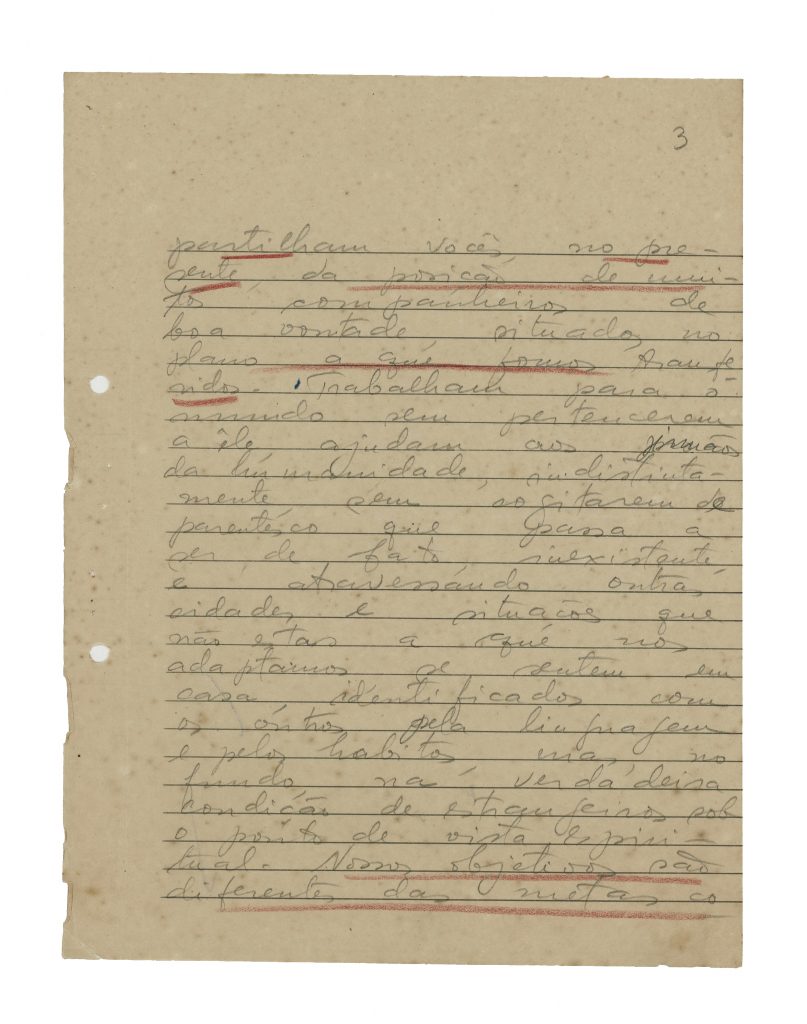 3
partilham vocês no pre-
sente, da posição de mui-
tos companheiros de
boa vontade situados no
plano a que fomos
ridos. Trabalham para o
mundo sem pertencerem
a êle ajudam aos irmãos
da humanidade, indistinta-
mente sem cogitarem de
parentêsco que passa a
ser de fato inexistente,
e atravessando outras
cidades e situações que
não estas a que nos
adaptamos se sentem em
casa, identificados com
os outros pela linguagem
e pelos habitos mas, no
fundo, na verdadeira
condição de estrangeiros sob
o ponto de vista espiri-
tual. Nossos objetivos são
diferentes das metas co